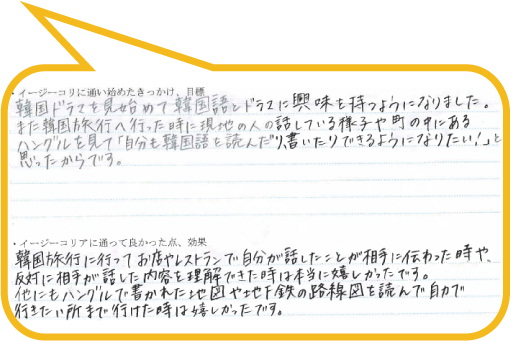 ・イージーコリに通い始めたきっかけ、目標
韓国ドラマを見始めて韓国語とドラマに興味を持つようになりました。
また韓国旅行へ行った時に現地の人の話している様子や町の中にある
ハングルを見て「自分も韓国語を読んだり、書いたりできるようになりたい!」と
思ったからです。
・イージーコリアに通って良かった点、効果
韓国旅行に行ってお店やレストランで自分が話したことが相手に伝わった時や、
反対に相手が話した内容を理解できた時は本当に嬉しかったです。
他にもハングルで書かれた地図や地下鉄の路線図を読んで自力で
行きたい所まで行けた時は嬉しかったです。